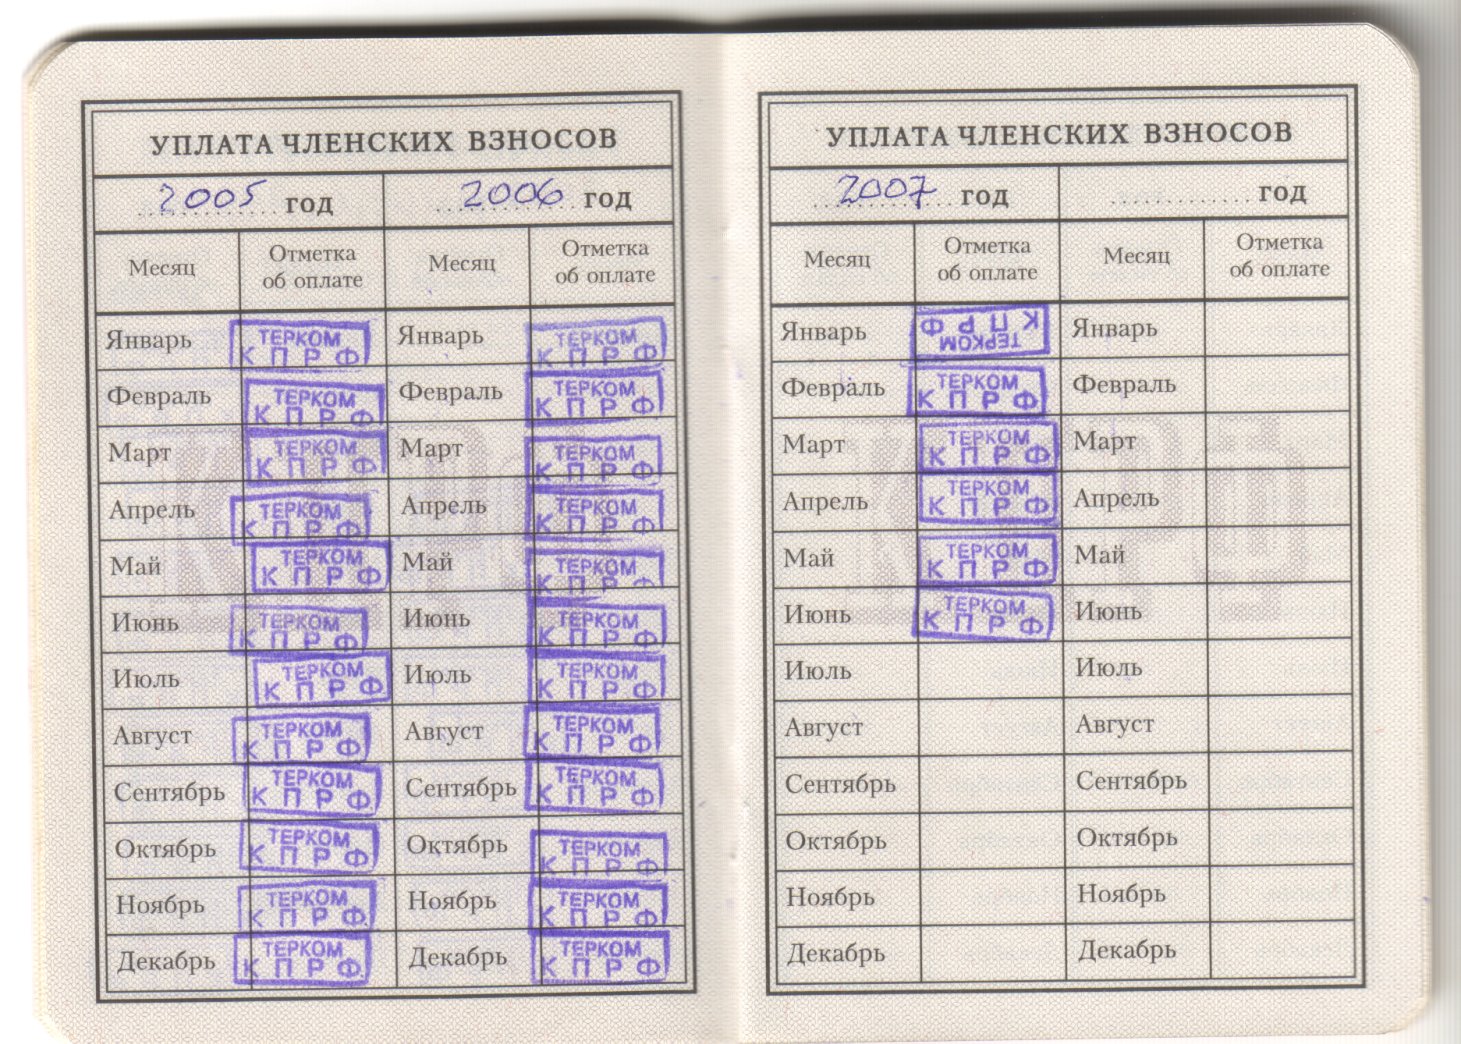 УПЛАТА ЧЛЕНСКИХ ВЗНОСОВ
2005 год 2006 год
Месяц Отметка об оплате Месяц Отметка об оплате
Январь ТЕРКОМ КПРФ Январь ТЕРКОМ КПРФ
Февраль ТЕРКОМ КПРФ Февраль ТЕРКОМ КПРФ
Март ТЕРКОМ КПРФ Март ТЕРКОМ КПРФ
Апрель ТЕРКОМ КПРФ Апрель ТЕРКОМ КПРФ
Май ТЕРКОМ КПРФ Май ТЕРКОМ КПРФ
Июнь ТЕРКОМ КПРФ Июнь ТЕРКОМ КПРФ
Июль ТЕРКОМ КПРФ Июль ТЕРКОМ КПРФ
Август ТЕРКОМ КПРФ Август ТЕРКОМ КПРФ
Сентябрь ТЕРКОМ КПРФ Сентябрь ТЕРКОМ КПРФ
Октябрь ТЕРКОМ КПРФ Октябрь ТЕРКОМ КПРФ
Ноябрь ТЕРКОМ КПРФ Ноябрь ТЕРКОМ КПРФ
Декабрь ТЕРКОМ КПРФ Декабрь ТЕРКОМ КПРФ
УПЛАТА ЧЛЕНСКИХ ВЗНОСОВ
2007 год год
Месяц Отметка об оплате Месяц Отметка об оплате
Январь ТЕРКОМ КПРФ Январь
Февраль ТЕРКОМ КПРФ Февраль
Март ТЕРКОМ КПРФ Март
Апрель ТЕРКОМ КПРФ Апрель
Май ТЕРКОМ КПРФ Май
Июнь ТЕРКОМ КПРФ Июнь
Июль Июль
Август Август
Сентябрь Сентябрь
Октябрь Октябрь
Ноябрь Ноябрь
Декабрь Декабрь